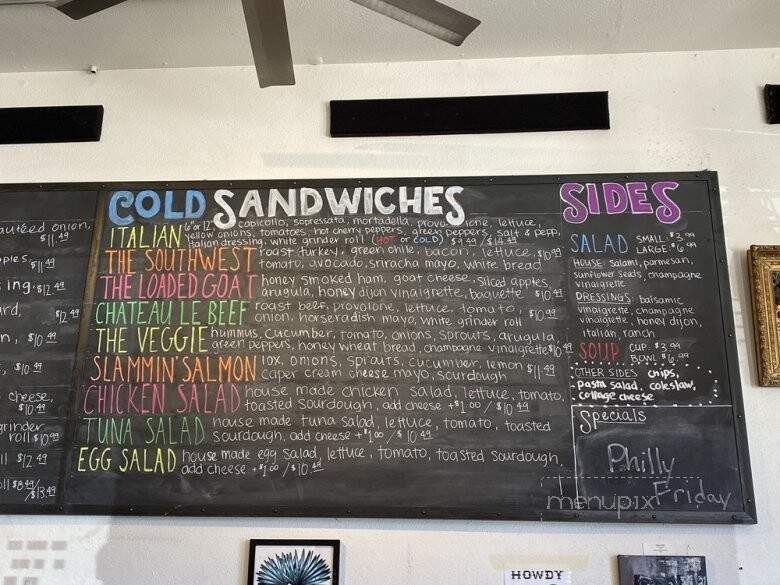 auteed onion,
$11.49
ples,
$11.49
ing.$12.49
ard,
$12.49
n, $10.49
, $10.49
cheese,
$10.49
grinder
roll $10.99
ll $12.49
oll $8.49/
$13.49
COLD SANDWICHES
ITALIAN 6" or 12" capicollo, sopressata, mortadella, provolone, lettuce,
yellow onions, tomatoes, hot cherry peppers, green peppers, salt & pepp,
Italian dressing, white grinder roll (HOT or COLD) $9.49/$14.49
THE SOUTHWEST roast turkey, green chile, bacon, lettuce, $10.99
tomato, avocado, sriracha mayo, white bread
THE LOADED GOAT honey smoked ham, goat cheese, sliced apples,
arugula, honey dijon vinaigrette, baguette $10.49
CHATEAU LE BEEF roast beef, provolone, lettuce, tomato,
onion, horseradish mayo, white grinder roll $10.99
THE VEGGIE hummus, cucumber, tomato, onions, sprouts, arugula,
green peppers, honey wheat bread, champagne vinaigrette $10.49
SLAMMIN' SALMON lox, onions, sprouts, cucumber, lemon
caper cream cheese mayo, sourdough $11.49
CHICKEN SALAD house made chicken salad, lettuce, tomato,
toasted sourdough, add cheese +$1.00 / $10.49
TUNA SALAD house made tuna salad, lettuce, tomato, toasted
sourdough, add cheese +$1.00 / $10.49
EGG SALAD house made egg salad, lettuce, tomato, toasted sourdough,
add cheese +$1.00 / $10.49
SIDES
SALAD SMALL $3.99
LARGE $6.99
HOUSE salami, parmesan,
sunflower seeds, champagne
vinaigrette
DRESSINGS: balsamic
vinaigrette, champagne
vinaigrette, honey dijon,
italian, ranch
SOUP CUP $3.99
BOWL $6.99
OTHER SIDES chips,
pasta salad, coleslaw,
cottage cheese
Specials
Philly
Friday
menupix
HOWDY